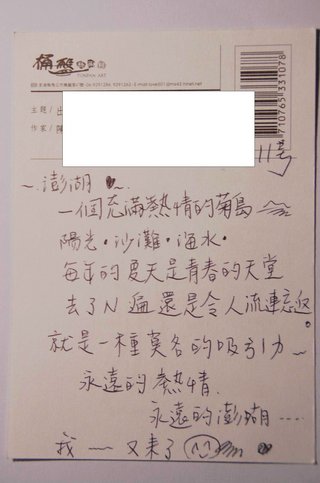 桶盤
TONPAN ART
主題/出
作家/陳
710765331078
11号
~澎湖~
一個充滿熱情的菊島
陽光·沙灘·海水·
每年的夏天是青春的天堂
去了N遍還是令人流連忘返
就是一種莫名的吸引力~
永遠的熱情
永遠的澎湖……
我~~又來了